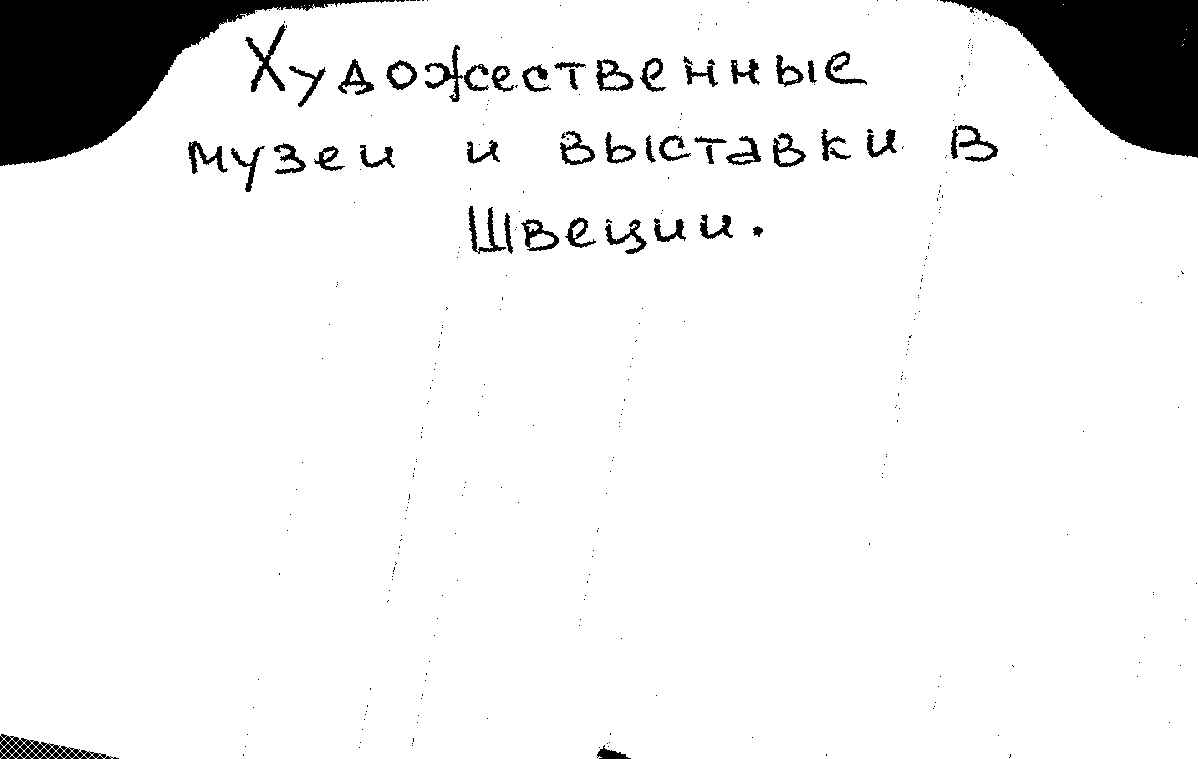 Художественные
музеи и выставки в
Швеции.